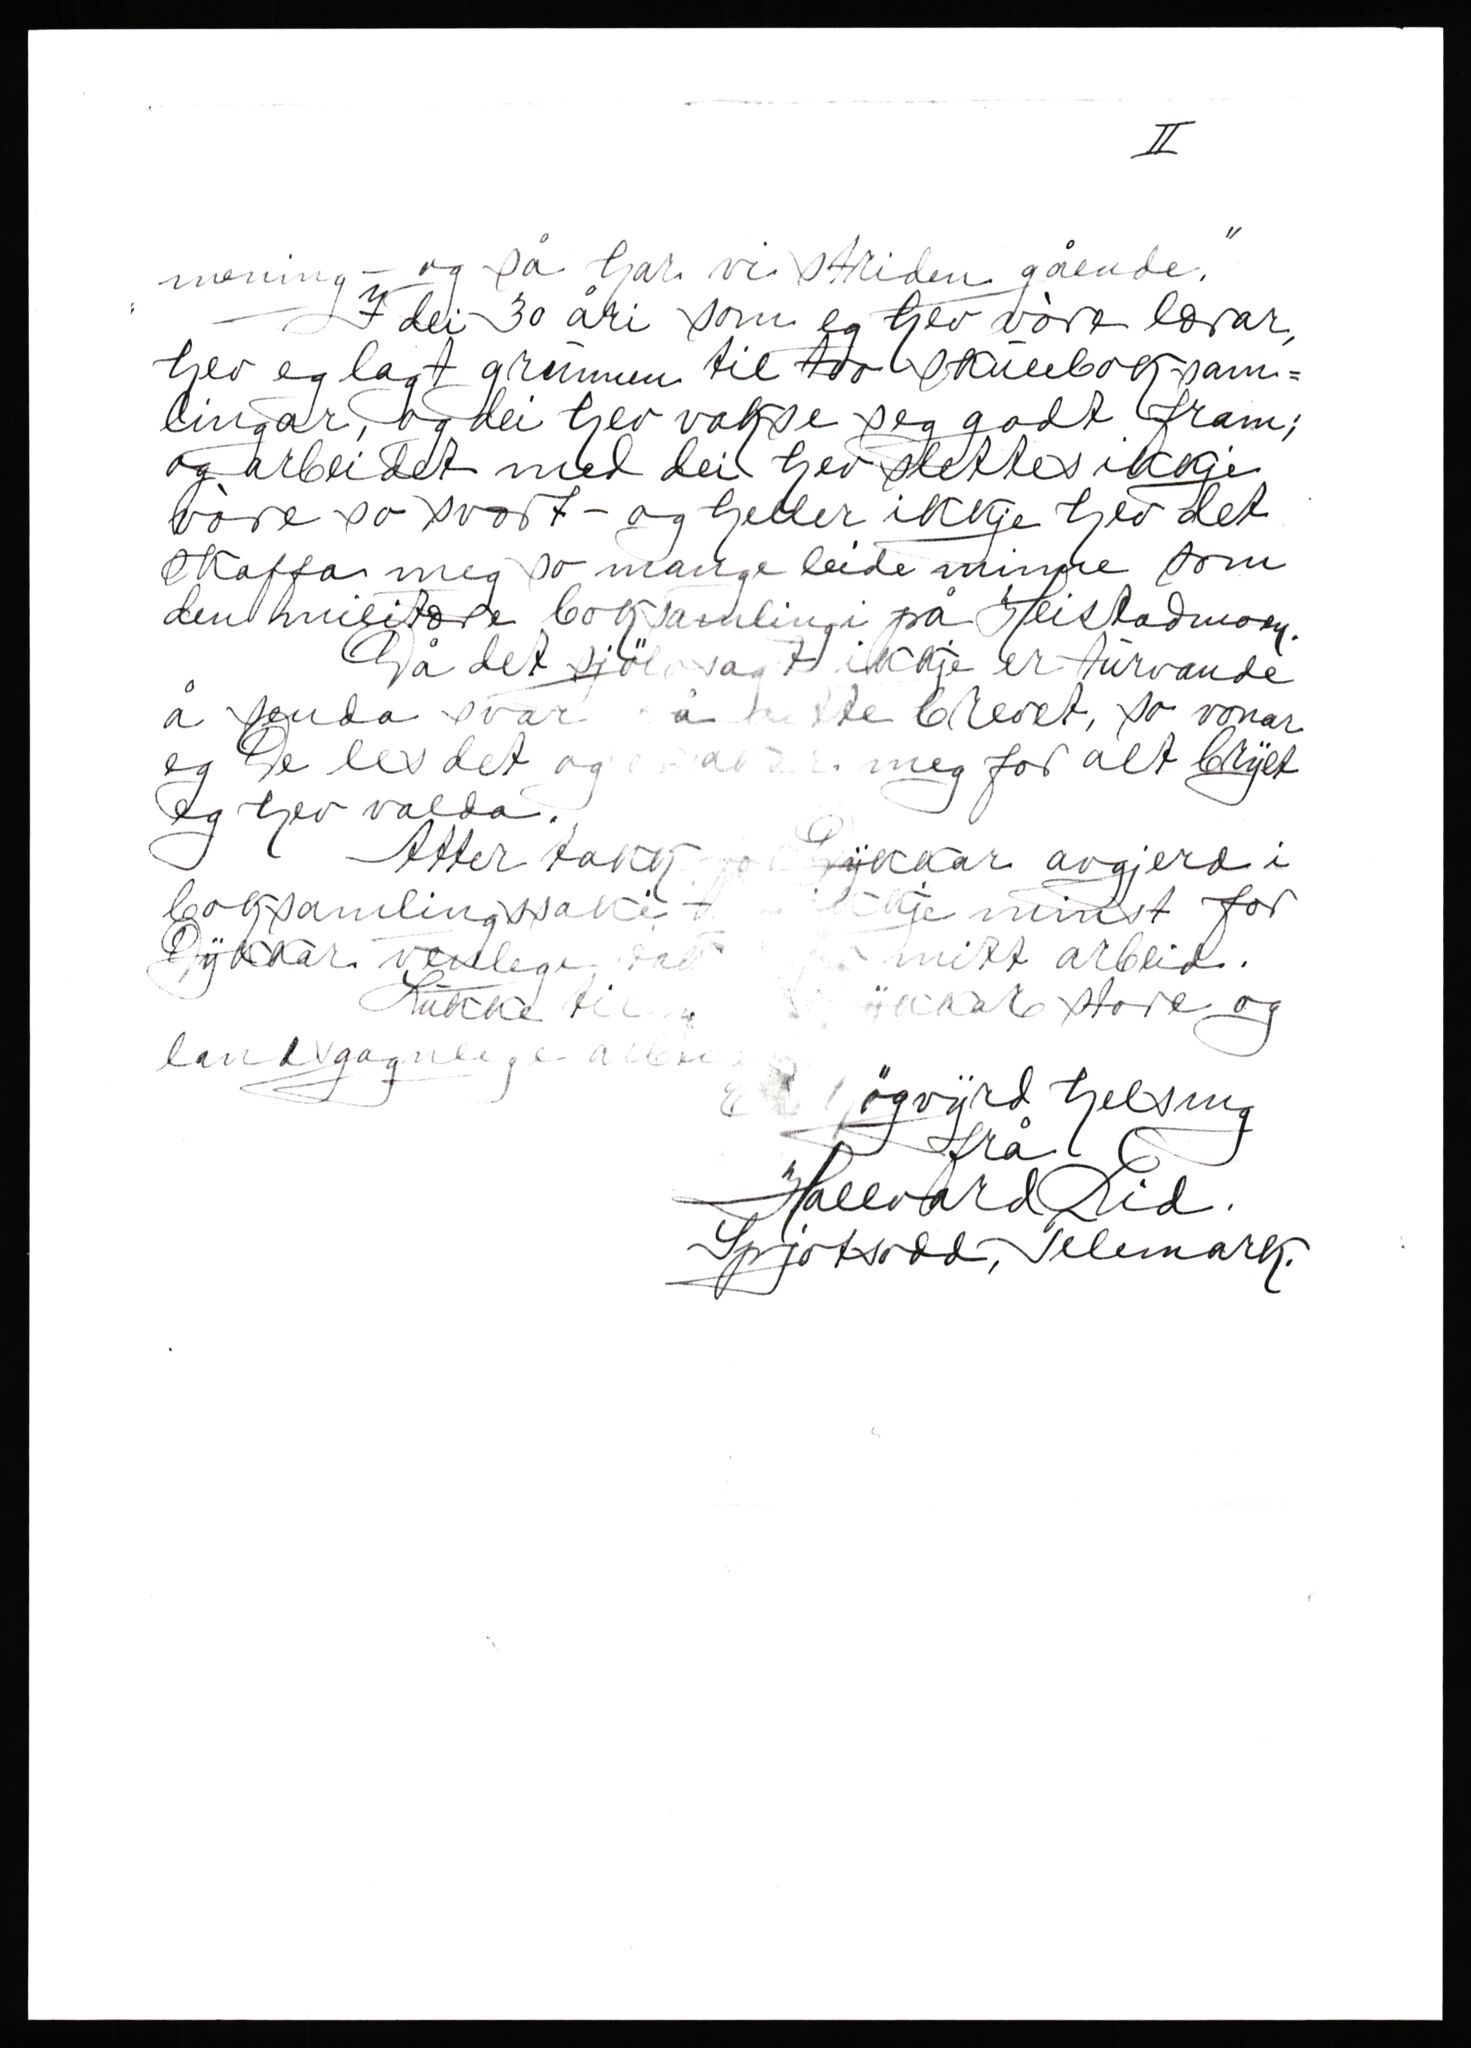 II
mening - og så har vi striden gående."
I dei 30 åri som eg hev vòre lærar,
hev eg lagt grunnen til tvo skulebok-sam=
lingar, og dei hev vakse seg godt fram;
og arbeidet med dei hev slettes ikkje
vòre so svært - og heller ikkje hev det
skaffa meg so mange leide minne som
den militære boksamlingi på Heistadmoen.
Då det sjölvsagt ikkje er turvande
å senda svar på dette brevet, so vonar
eg De les det og meg for alt bryet
eg hev valda.
Atter takk for Dykkar avgjerd i
boksamlingssaki - ikkje minst for
Dykkar venlege mitt arbeid.
Lukke til Dykkar store og
landsgagnlege arbeid
högvyrd helsing
frå
Hallvard Eid.
Spjotsodd, Telemark.